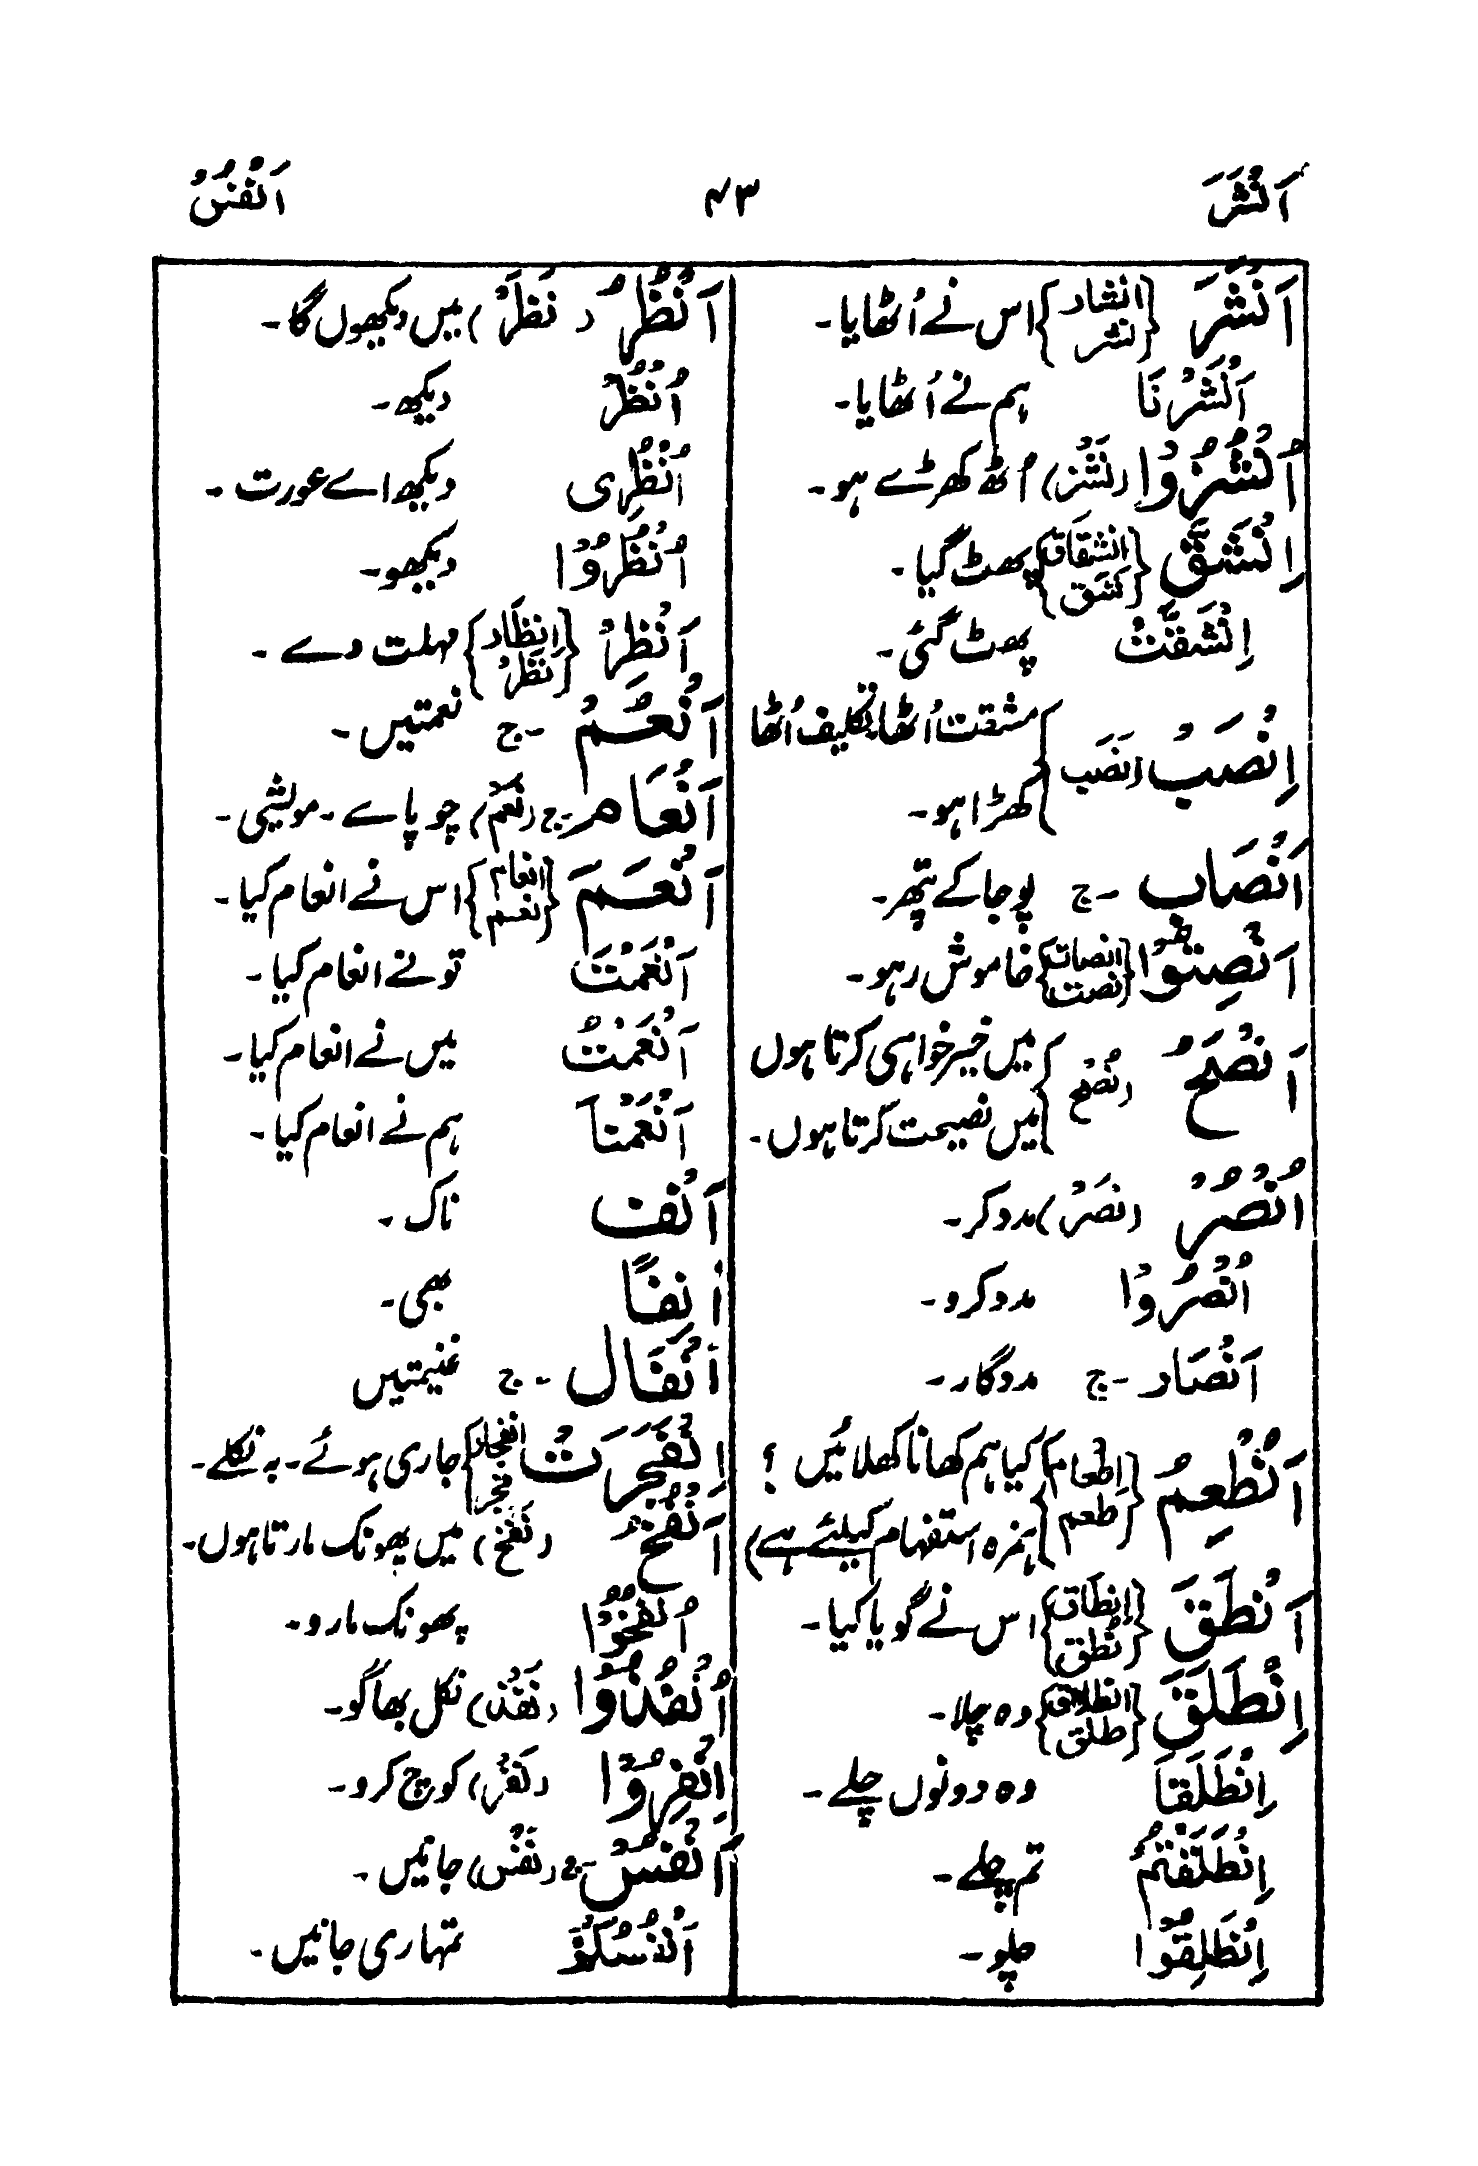 اَنْشَرَ ۴۳ اَنْفُسُ
اَنْشَرَ {انشار نشر} اس نے اُٹھایا۔
اَنْشَرْنَا ہم نے اُٹھایا۔
اُنْشُزُوْا (نَشْز) اُٹھ کھڑے ہو۔
اِنْشَقَّ {انشقاق شق} پھٹ گیا۔
اِنْشَقَّتْ پھٹ گئی۔
اِنْصَبْ (نَصَب) مشقت اُٹھا، تکلیف اُٹھا
کھڑا ہو۔
اَنْصَاب ۔ج پوجا کے پتھر۔
اَنْصِتُوْا {انصات نصت} خاموش رہو۔
اَنْصَحُ (نُصْح) میں خیر خواہی کرتا ہوں
میں نصیحت کرتا ہوں۔
اُنْصُرْ (نَصْر) مدد کر۔
اُنْصُرُوْا مدد کرو۔
اَنْصَار ۔ج مددگار۔
اَنُطْعِمُ {اِطعام طعم} کیا ہم کھانا کھلائیں؟
(ہمزہ استفہام کیلئے ہے)
اَنْطَقَ {اِنطاق نُطق} اس نے گویا کیا۔
اِنْطَلَقَ {انطلاق طلق} وہ چلا۔
اِنْطَلَقَا وہ دونوں چلے۔
اِنْطَلَقْتُمْ تم چلے۔
اِنْطَلِقُوْا چلو۔
اَنْظُرُ (نَظَرْ) میں دیکھوں گا۔
اُنْظُرْ دیکھ۔
اُنْظُرِی دیکھ اے عورت۔
اُنْظُرُوْا دیکھو۔
اَنْظِرْ {اِنظار نَظَرْ} مہلت دے۔
اَنْعُمُ ۔ج نعمتیں۔
اَنْعَام ۔ج (نَعَمْ) چوپائے۔ مویشی۔
اَنْعَمَ {انعام نعم} اس نے انعام کیا۔
اَنْعَمْتَ تو نے انعام کیا۔
اَنْعَمْتُ میں نے انعام کیا۔
اَنْعَمْنَا ہم نے انعام کیا۔
اَنْف ناک۔
اٰنِفًا ابھی۔
اَنْفَال ۔ج غنیمتیں
اِنْفَجَرَتْ {انفجار فجر} جاری ہوئے۔ بہ نکلے۔
اَنْفُخُ (نَفْخ) میں پھونک مارتا ہوں۔
اُنْفُخُوْا پھونک مارو۔
اُنْفُذُوْا (نَفْذ) نکل بھاگو۔
اِنْفِرُوْا (نَفْر) کوچ کرو۔
اَنْفُسُ ۔ج (نَفْس) جانیں۔
اَنْفُسَكُمْ تمہاری جانیں۔